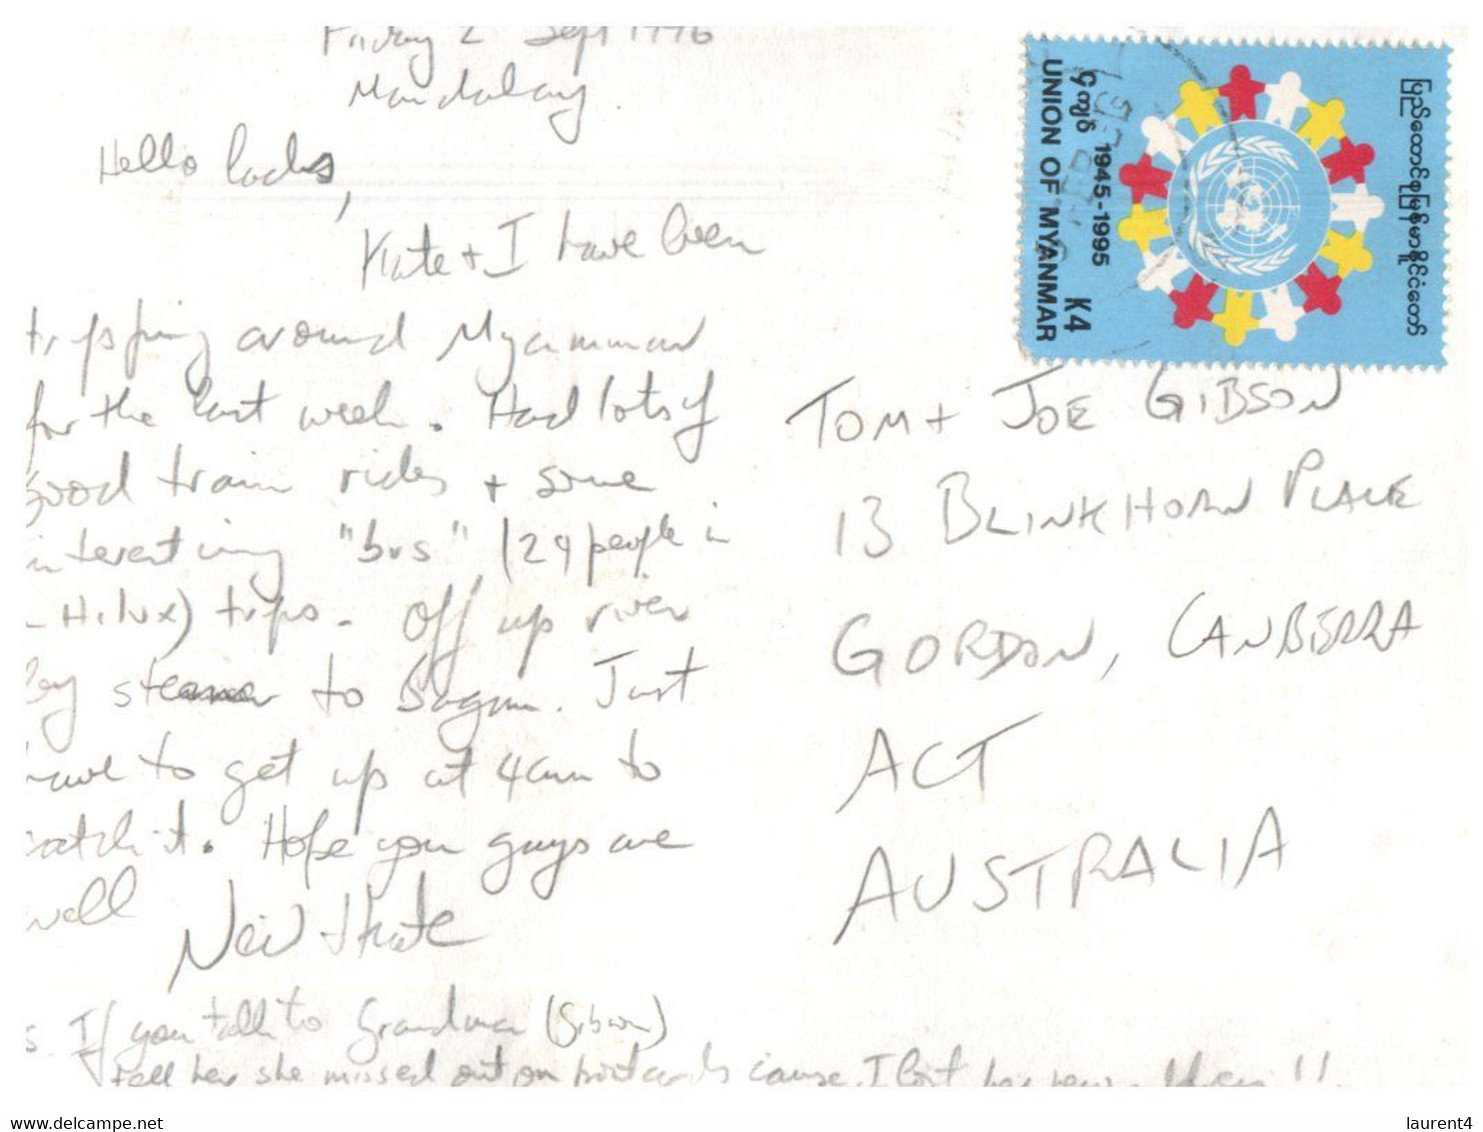 Friday 2 Sept 1996
Mandalay.
Hello lads,
Kate + I have been
tripping around Myanmar
for the last week. Had lots of
good train rides + some
interesting "bus" (29 people in
- Hilux) trips. Off up river
by steamer to Bagan. Just
have to get up at 4am to
catch it. Hope you guys are
well
Neil + Kate
s. If you talk to Grandma (Gibson)
tell her she missed out on postcards 'cause I lost her
UNION OF MYANMAR
1945-1995
K4
TOM + JOE GIBSON
13 BLINKHORN PLACE
GORDON, CANBERRA
ACT
AUSTRALIA
www.delcampe.net
laurent4